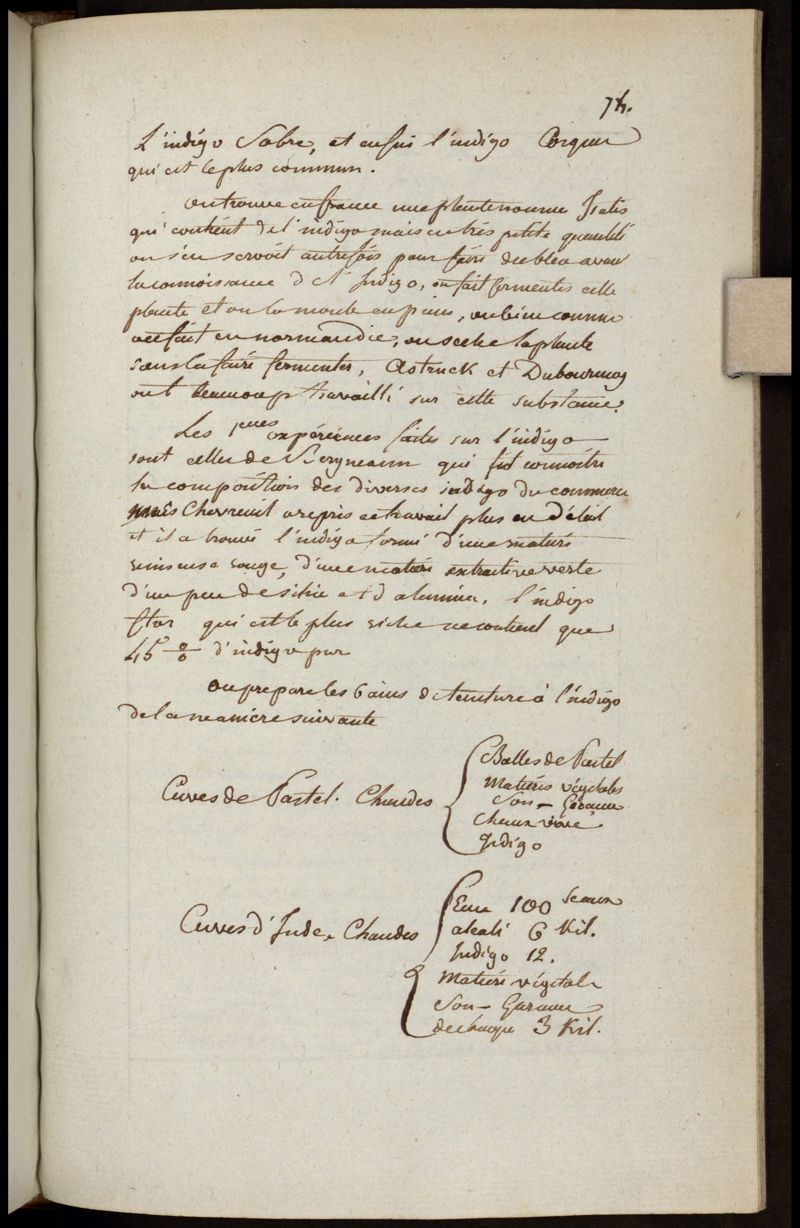 74.
L'indigo Sobre, et enfin l'indigo Corqueur
qui est le plus commun.
on trouve en france une plante nommé Isatis
qui contient de l'indigo mais en très petite quantité
on s'en servoit autrefois pour faire du bleu avant
la connoissance de l'Indigo, on fait fermenter cette
plante et on la moule en pains, ou bien comme
on fait en normandie, on seche la plante
sans la faire fermenter, Astruck et Dubournay
ont beaucoup travailli sur cette substance.
Les 1eres expériences faites sur l'indigo
sont celles de Bergmann qui fit connoitre
la composition des diverses indigo du commerce
mais Chevreuil a repris ce travail plus en détail
et il a trouvé l'indigo formé d'une matiere
resineuse rouge, d'une matiere extractive verte
d'un peu de silice et d'alumine. l'indigo
flor qui est le plus riche ne contient que
45 % d'indigo pur
on prepare les bains de teinture à l'indigo
de la maniere suivante
Cuves de Pastel. Chaudes
Balles de Pastel
Matieres végétales
Son - Garance
Chaux vive
Indigo
Cuves d'Inde. Chaudes
Eau 100 Seaux
alcali 6 Kil.
Indigo 12.
Matiere végétale
Son - Garance
de chaque 3 Kil.